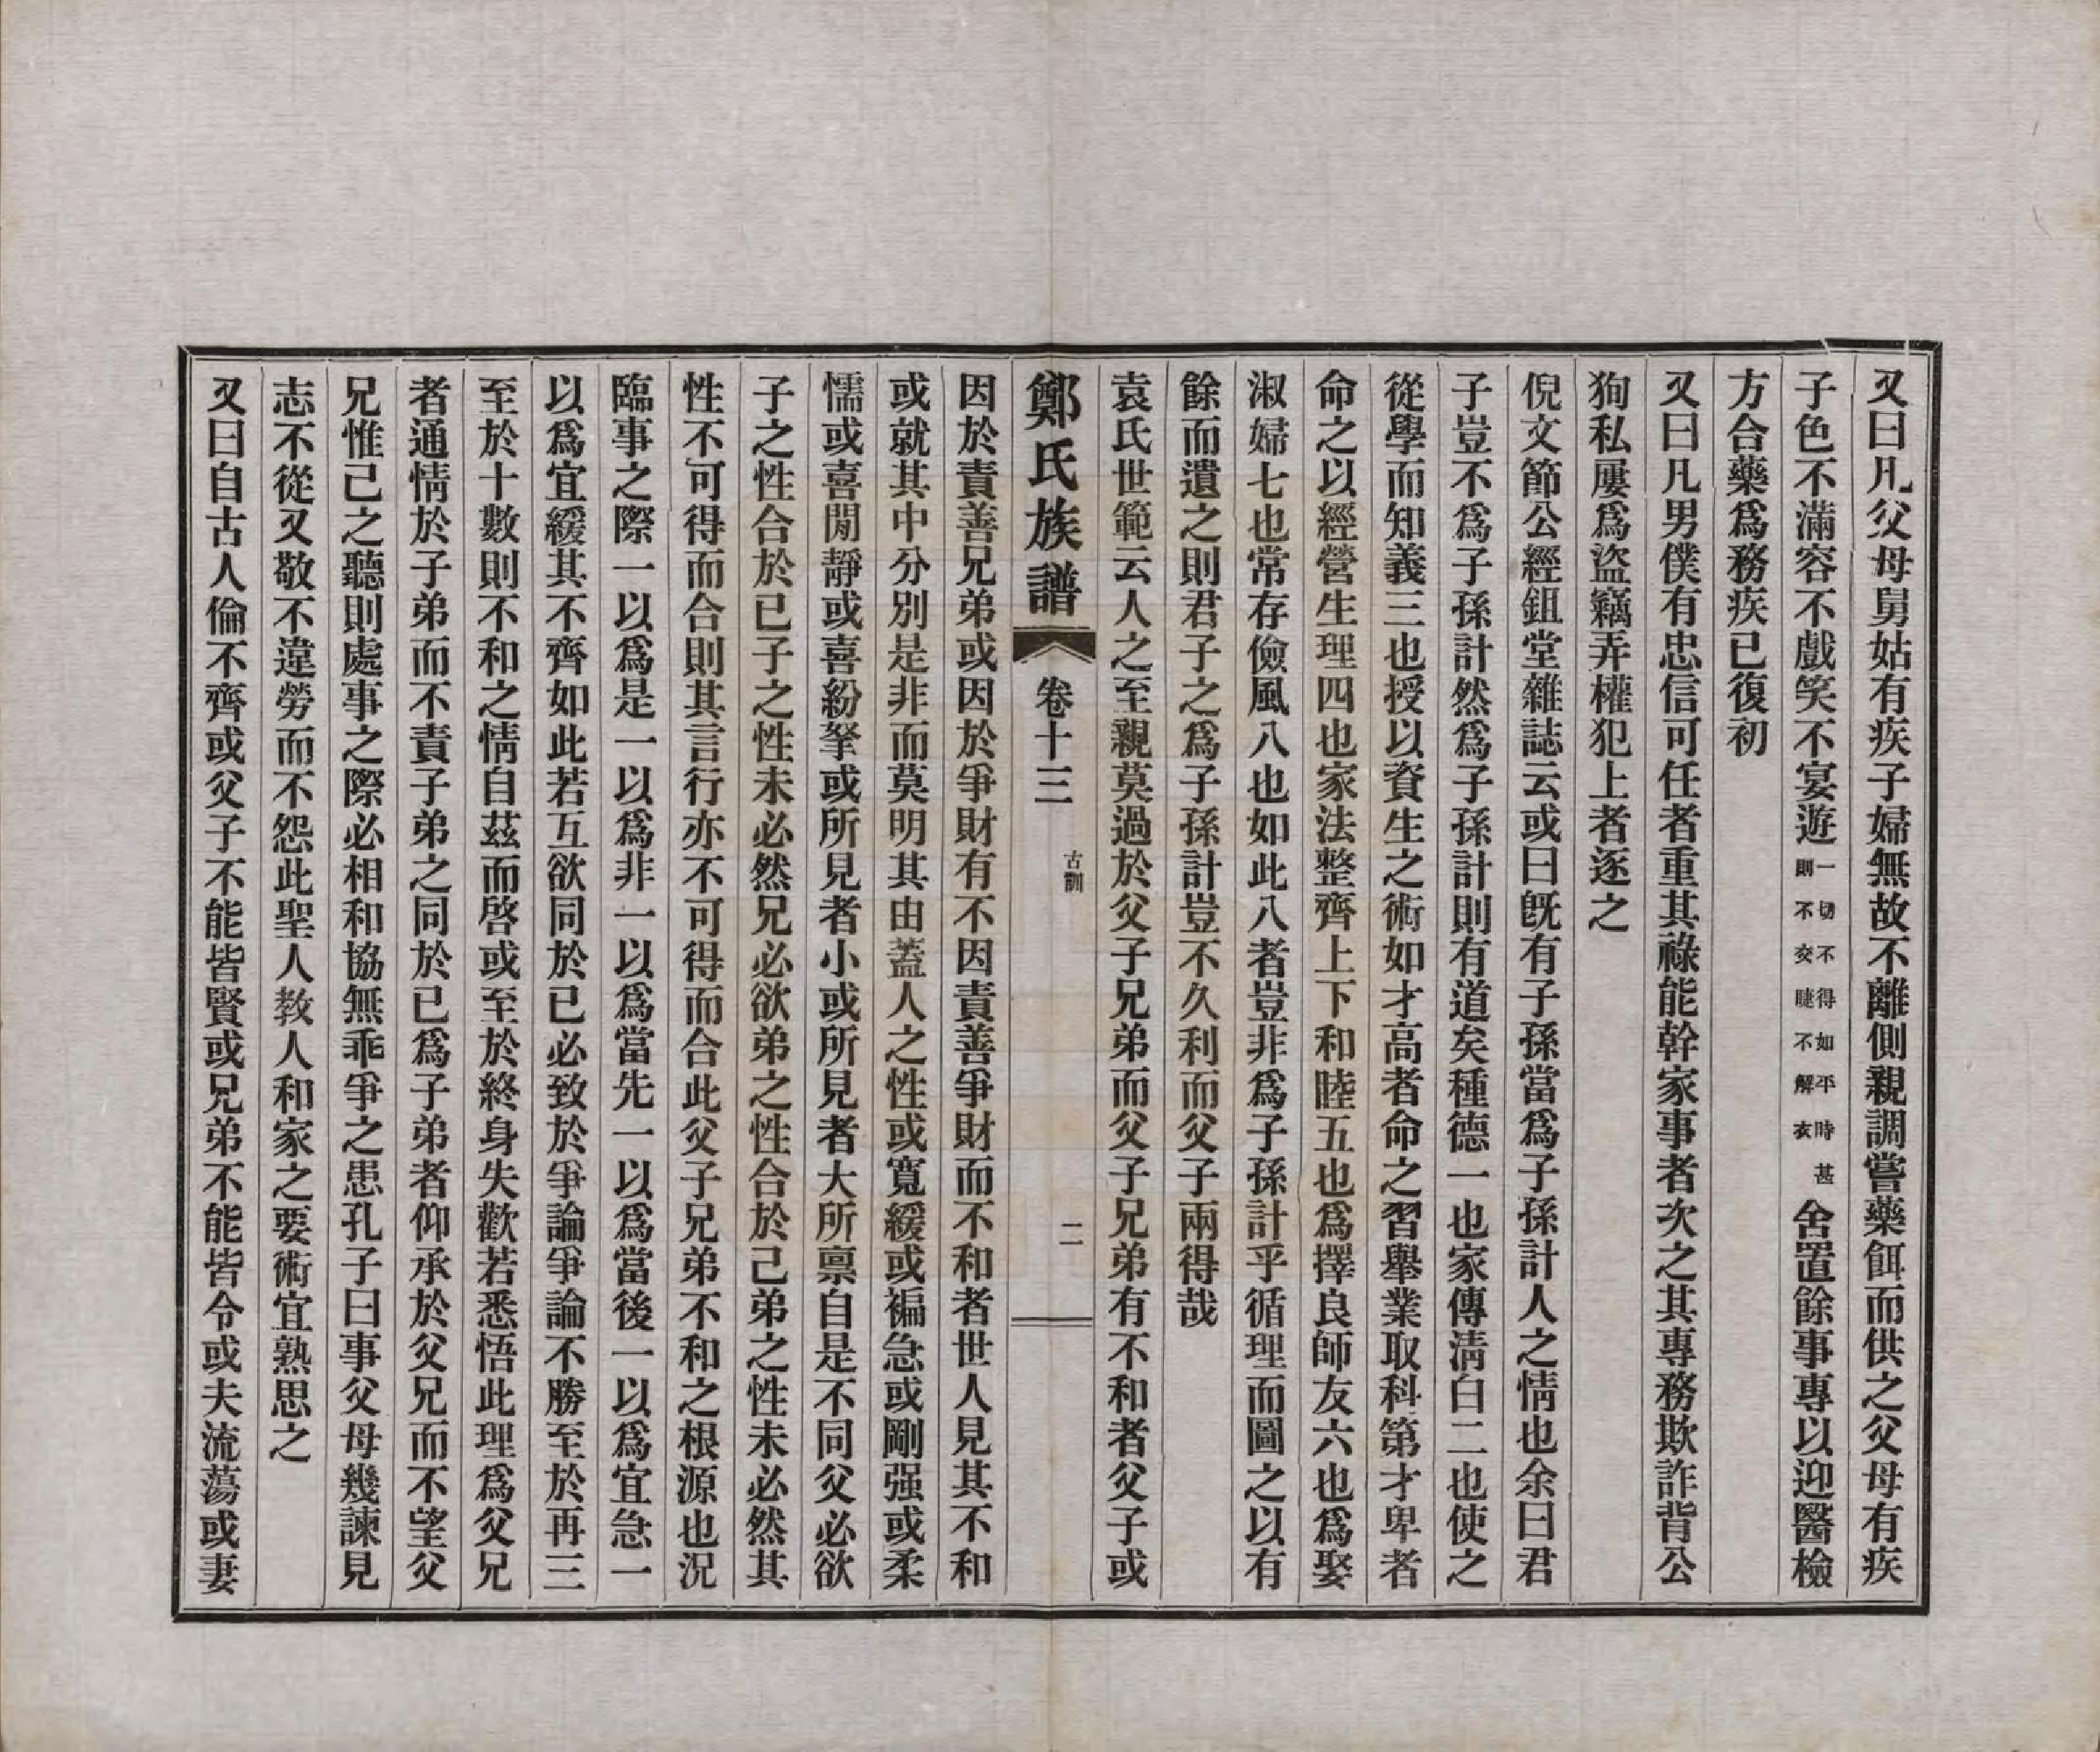 又曰凡父母舅姑有疾子婦無故不離側親調嘗藥餌而供之父母有疾
子色不滿容不戲笑不宴遊一切不得如平時甚則不交睫不解衣舍置餘事專以迎醫檢
方合藥爲務疾已復初
又曰凡男僕有忠信可任者重其祿能幹家事者次之其專務欺詐背公
狥私屢爲盜竊弄權犯上者逐之
倪文節公經鉏堂雜誌云或曰旣有子孫當爲子孫計人之情也余曰君
子豈不爲子孫計然爲子孫計則有道矣種德一也家傳淸白二也使之
從學而知義三也授以資生之術如才高者命之習舉業取科第才卑者
命之以經營生理四也家法整齊上下和睦五也爲擇良師友六也爲娶
淑婦七也常存儉風八也如此八者豈非爲子孫計乎循理而圖之以有
餘而遺之則君子之爲子孫計豈不久利而父子兩得哉
袁氏世範云人之至親莫過於父子兄弟而父子兄弟有不和者父子或
鄭氏族譜 卷十三 古訓 二
因於責善兄弟或因於爭財有不因責善爭財而不和者世人見其不和
或就其中分別是非而莫明其由蓋人之性或寬緩或褊急或剛强或柔
懦或喜閒靜或喜紛拏或所見者小或所見者大所禀自是不同父必欲
子之性合於已子之性未必然兄必欲弟之性合於己弟之性未必然其
性不可得而合則其言行亦不可得而合此父子兄弟不和之根源也況
臨事之際一以爲是一以爲非一以爲當先一以爲當後一以爲宜急一
以爲宜緩其不齊如此若互欲同於已必致於爭論爭論不勝至於再三
至於十數則不和之情自茲而啓或至於終身失歡若悉悟此理爲父兄
者通情於子弟而不責子弟之同於已爲子弟者仰承於父兄而不望父
兄惟己之聽則處事之際必相和協無乖爭之患孔子曰事父母幾諫見
志不從又敬不違勞而不怨此聖人教人和家之要術宜熟思之
又曰自古人倫不齊或父子不能皆賢或兄弟不能皆令或夫流蕩或妻